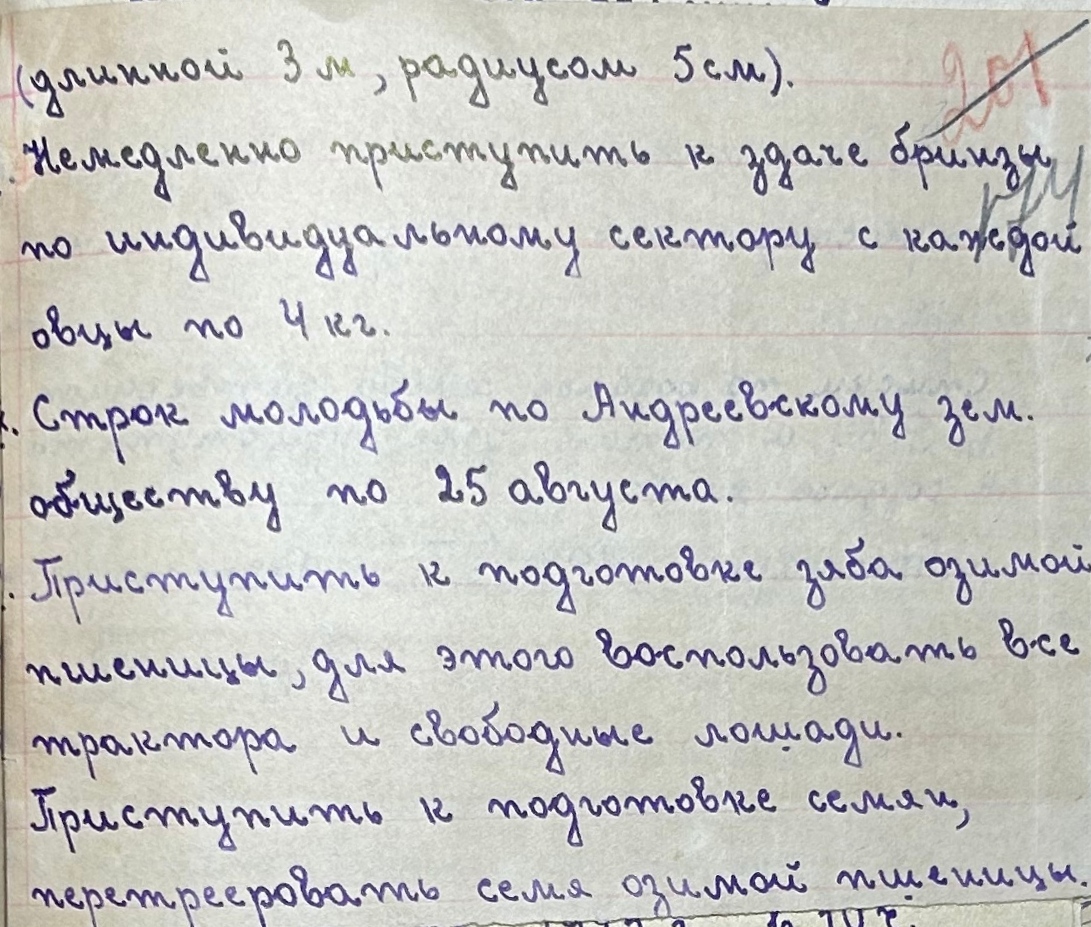 (длинной 3 м, радиусом 5 см).
201
Немедленно приступить к здаче бринзы
по индивидуальному сектору с каждой
овцы по 4 кг.
Строк молодьбы по Андреевскому зем.
обществу по 25 августа.
Приступить к подготовке зяба озимой
пшеницы, для этого воспользовать все
трактора и свободные лошади.
Приступить к подготовке семян,
перетрееровать семя озимой пшеницы.